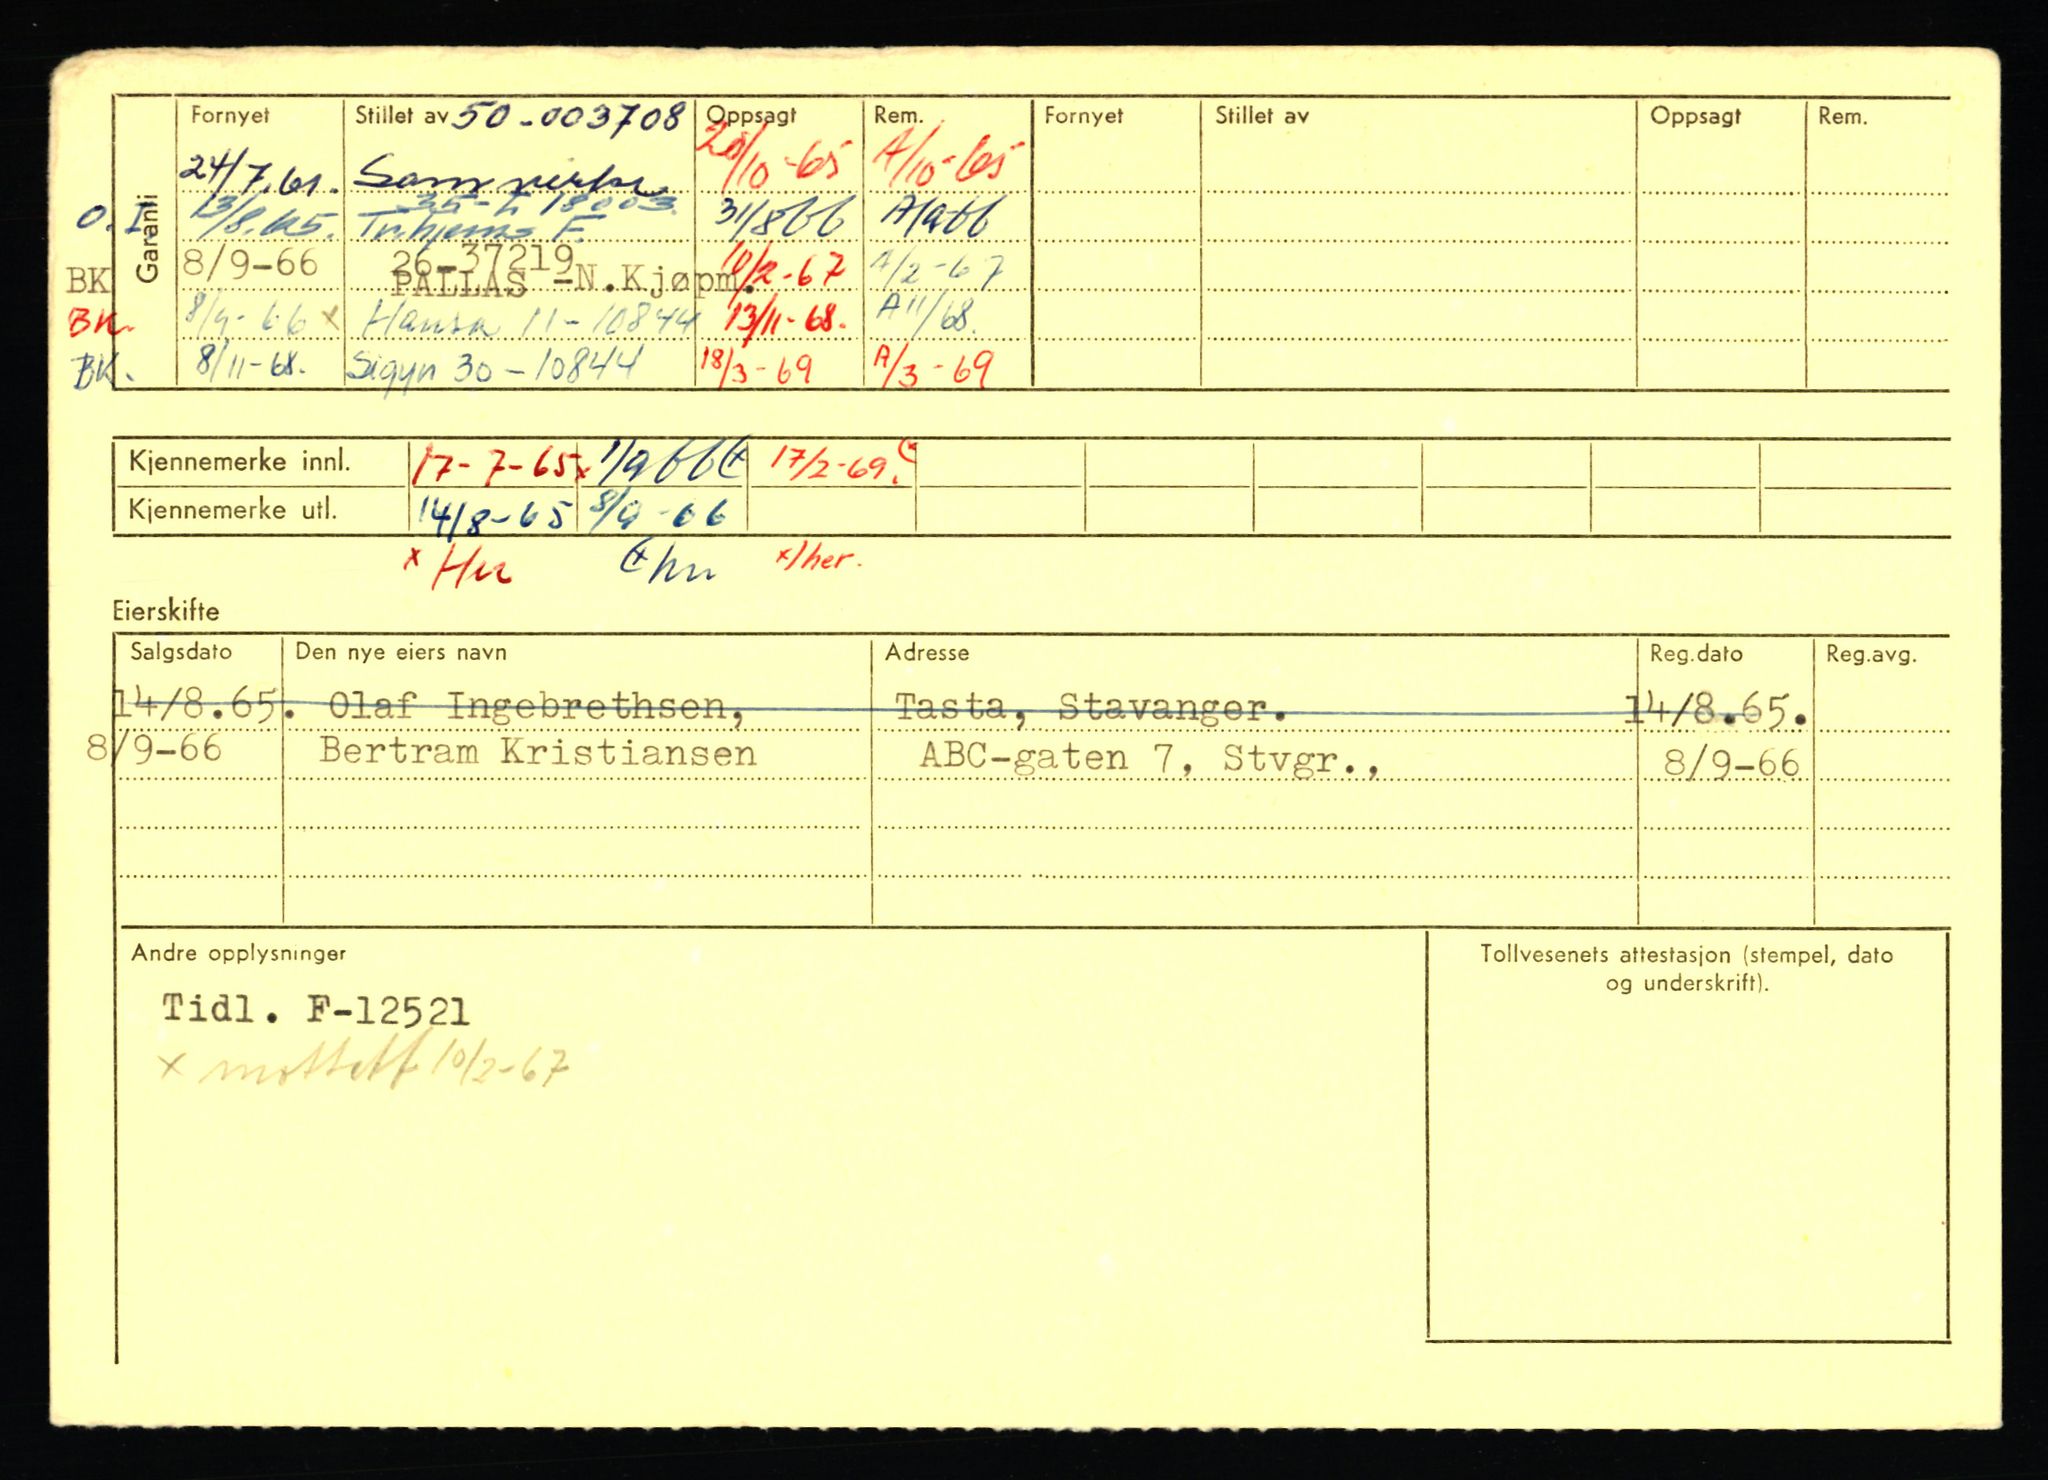 Garanti
Fornyet Stillet av 50-003708 Oppsagt Rem. Fornyet Stillet av Oppsagt Rem.
24/7. Samvirke /10-65 A/10-65
O. I 13/8.65. 35-L 18003. Tr.hjems F. 31/8 66 A/9 66
BK 8/9-66 26-37219 10/2-67 A/2-67
PALLAS -N.Kjøpm.
BK. 8/9-66 x Hansa 11-10844 13/11-68. A 11/68.
BK. 8/11-68. Sigyn 30-10844 18/3-69 A/3-69
Kjennemerke innl. 17-7-65x 1/9 66 (x 17/2-69. (x
Kjennemerke utl. 14/8-65 8/9-66
x Hn (x hn x/her.
Eierskifte
Salgsdato Den nye eiers navn Adresse Reg.dato Reg.avg.
14/8.65. Olaf Ingebrethsen, Tasta, Stavanger. 14/8.65.
8/9-66 Bertram Kristiansen ABC-gaten 7, Stvgr., 8/9-66
Andre opplysninger
Tollvesenets attestasjon (stempel, dato
og underskrift).
Tidl. F-12521
x mottatt 10/2-67